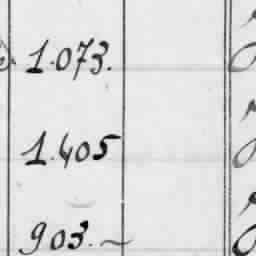 1.073.
1.405
903.~